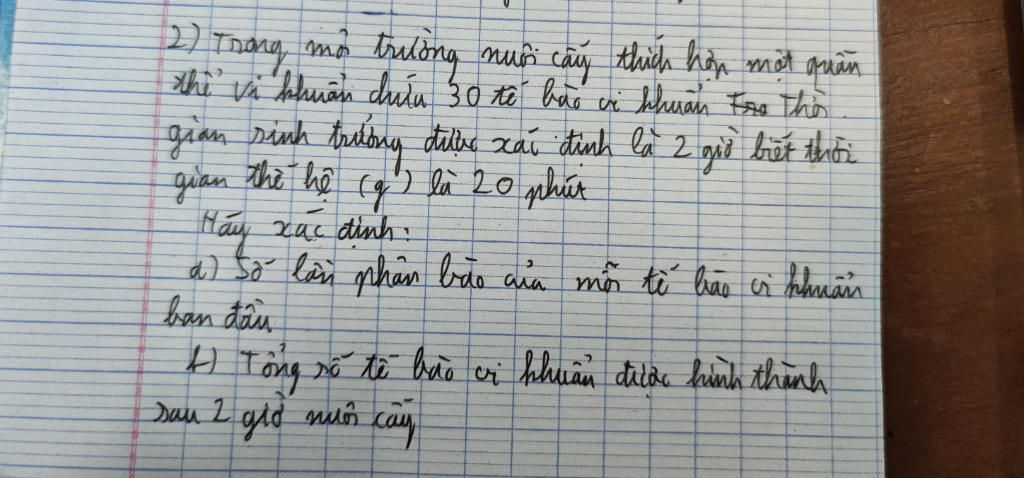 2) Trong môi trường nuôi cấy thích hợp một quần
thể vi khuẩn chứa 30 tế bào vi khuẩn Thời
gian sinh trưởng được xác định là 2 giờ biết thời
gian thế hệ (g) là 20 phút
Hãy xác định:
a) Số lần phân bào của mỗi tế bào vi khuẩn
ban đầu
b) Tổng số tế bào vi khuẩn được hình thành
sau 2 giờ nuôi cấy